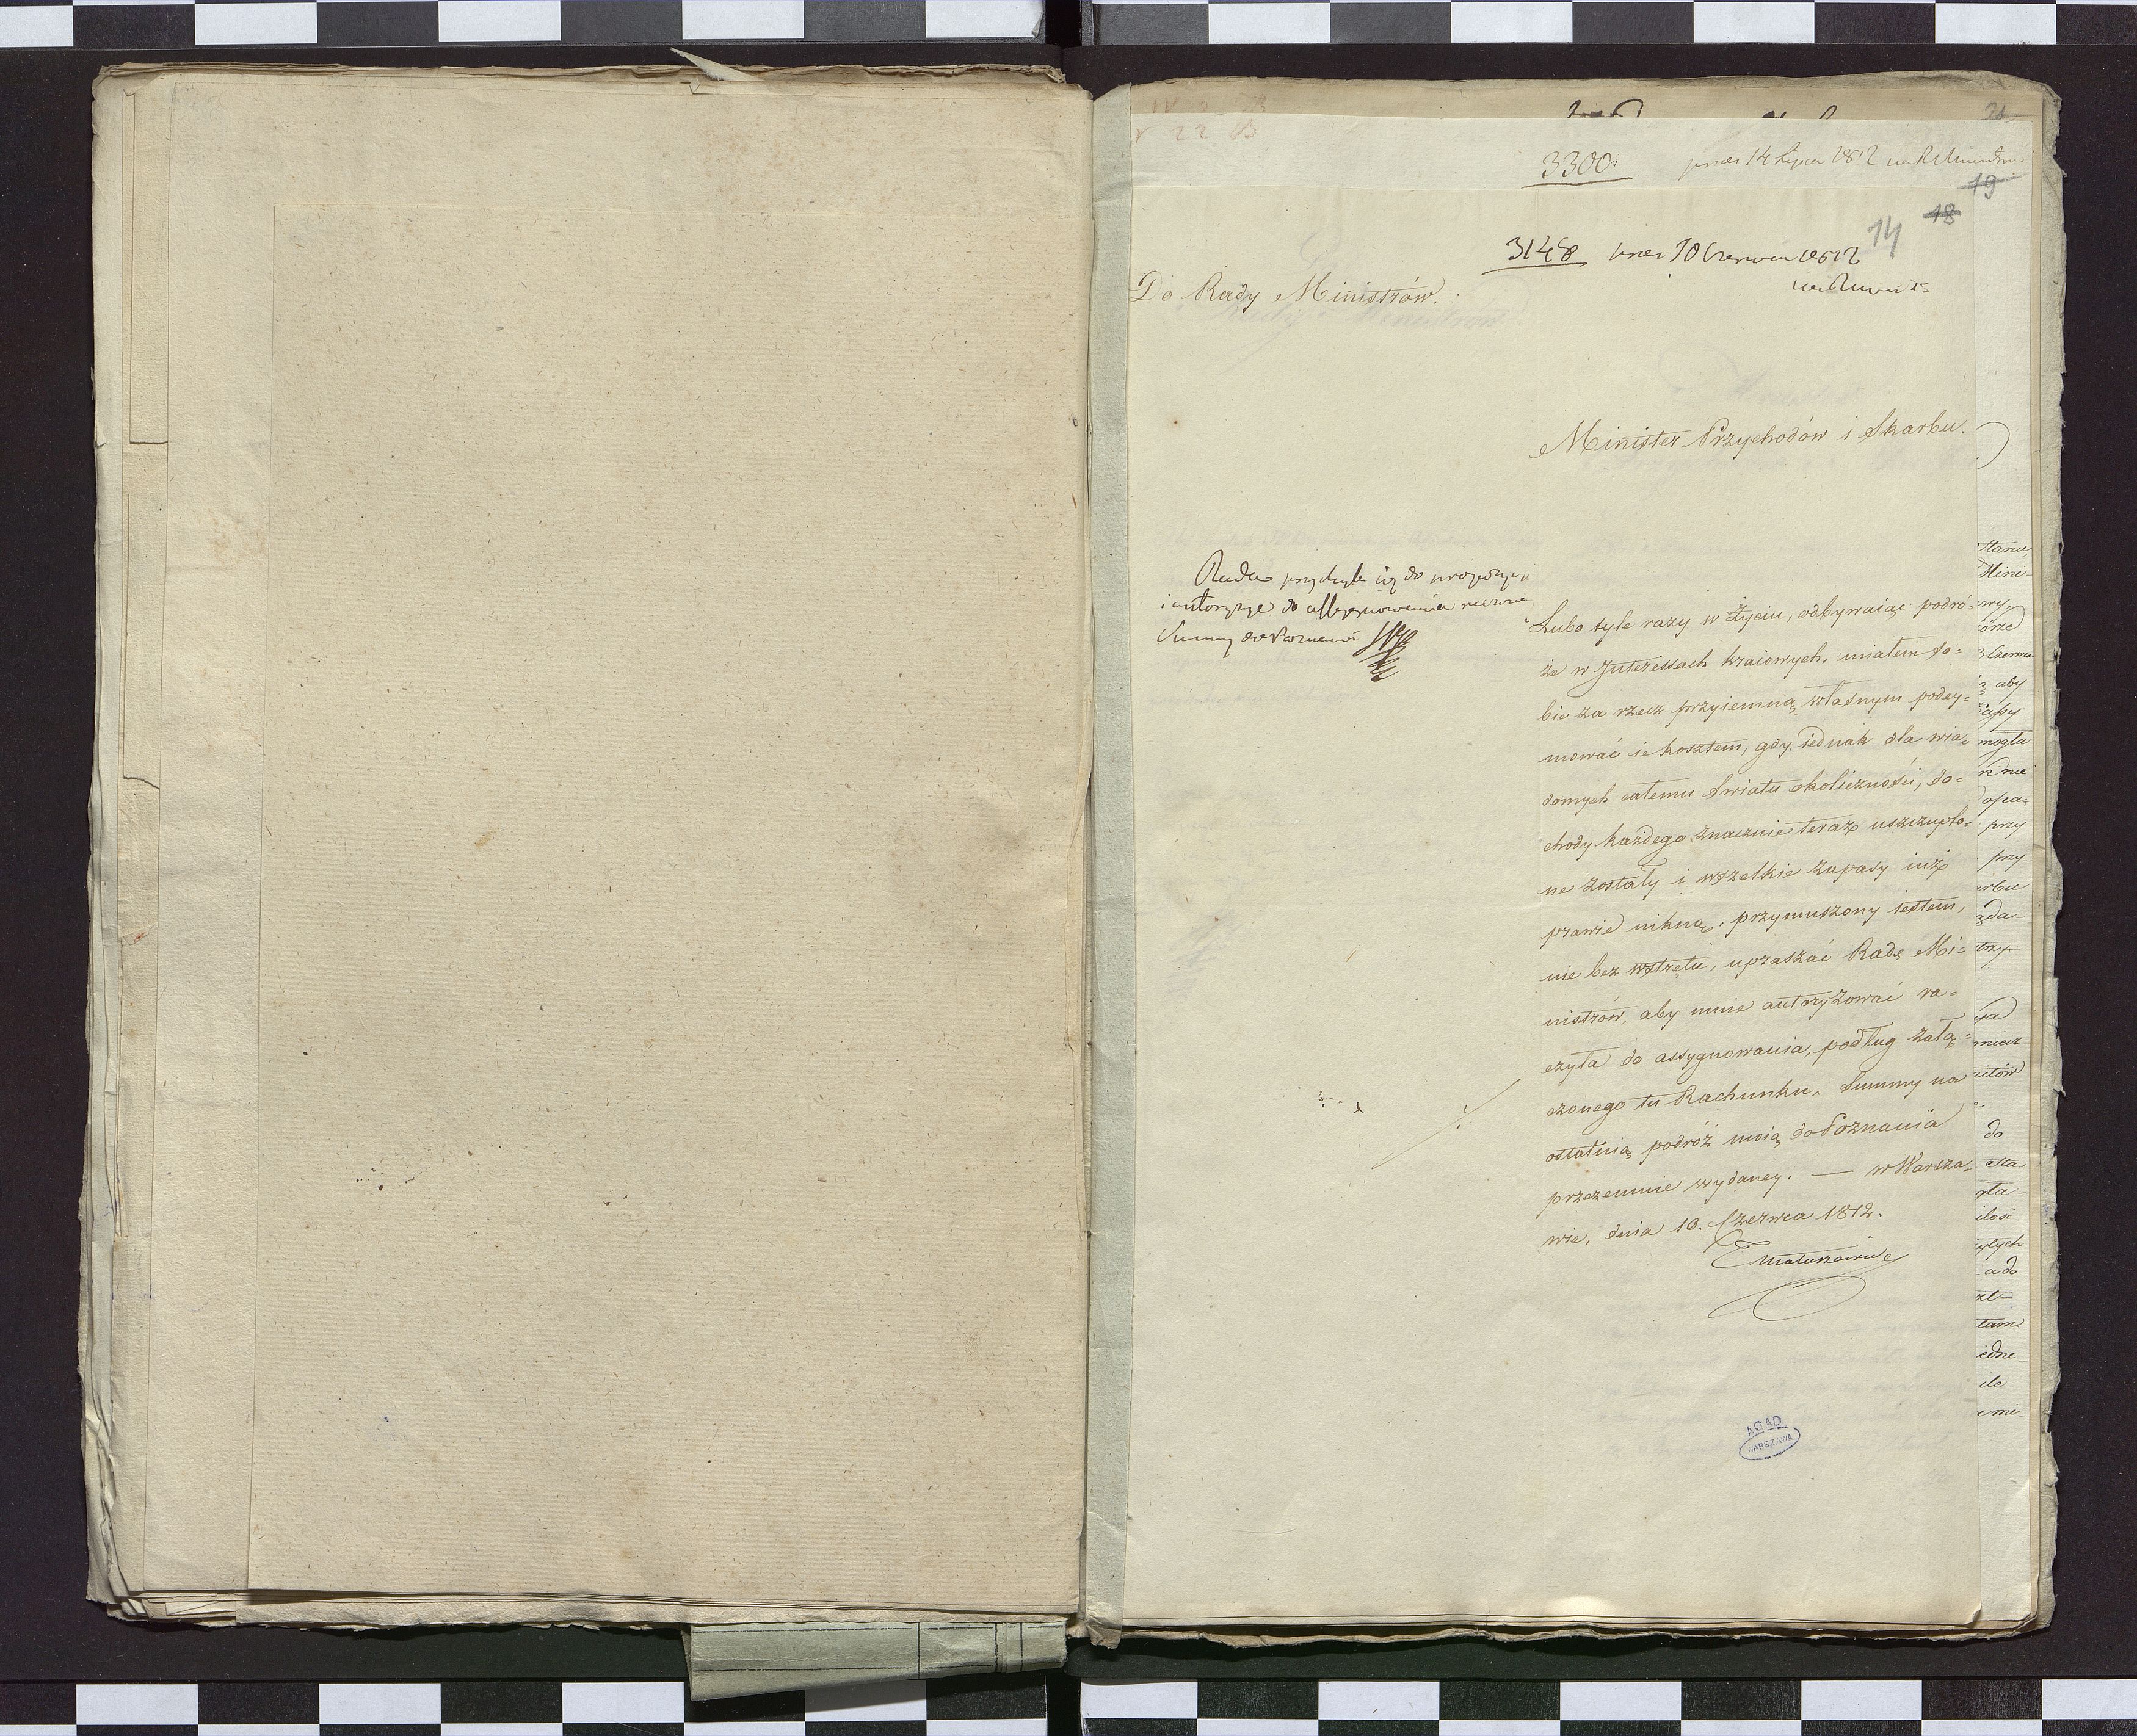 21
3300. praes 14 Lipca 1812
19
18
14
3148 praes 10 Czerwca 1812
Do Rady Ministrów.
Minister Przychodów i Skarbu.
Rada przychyla się do
i autoryzuje do assygnowania
Summy do Poznania
Lubo tyle razy w Życiu, odbywaiąc podró=
że w Interessach kraiowych, miałem so=
bie za rzecz przyiemną własnym podey=
mować ie kosztem, gdy iednak dla wia=
domych całemu światu okoliczności, do=
chody każdego znacznie teraz uszczuplo=
ne zostały i wszelkie zapasy iuż
prawie nikną, przymuszony iestem,
nie bez wstrętu, upraszać Radę Mi=
nistrów, aby mnie autryzować ra=
czyła do assygnowania, podług załą=
czonego tu Rachunku, Summy na
ostatnią podróż moią do Poznania
przezemnie wydaney. — w Warsza=
wie, dnia 10. Czerwca 1812.
TMatuszewic
Stanu,
Mini-
wy,
3 Czerwca
aby
mogła
nie
opa=
przy
przy
arbu
trzy-
do
sta
ilość
ytych
a do
tami
iedne
ile
mi-
AGAD
WARSZAWA